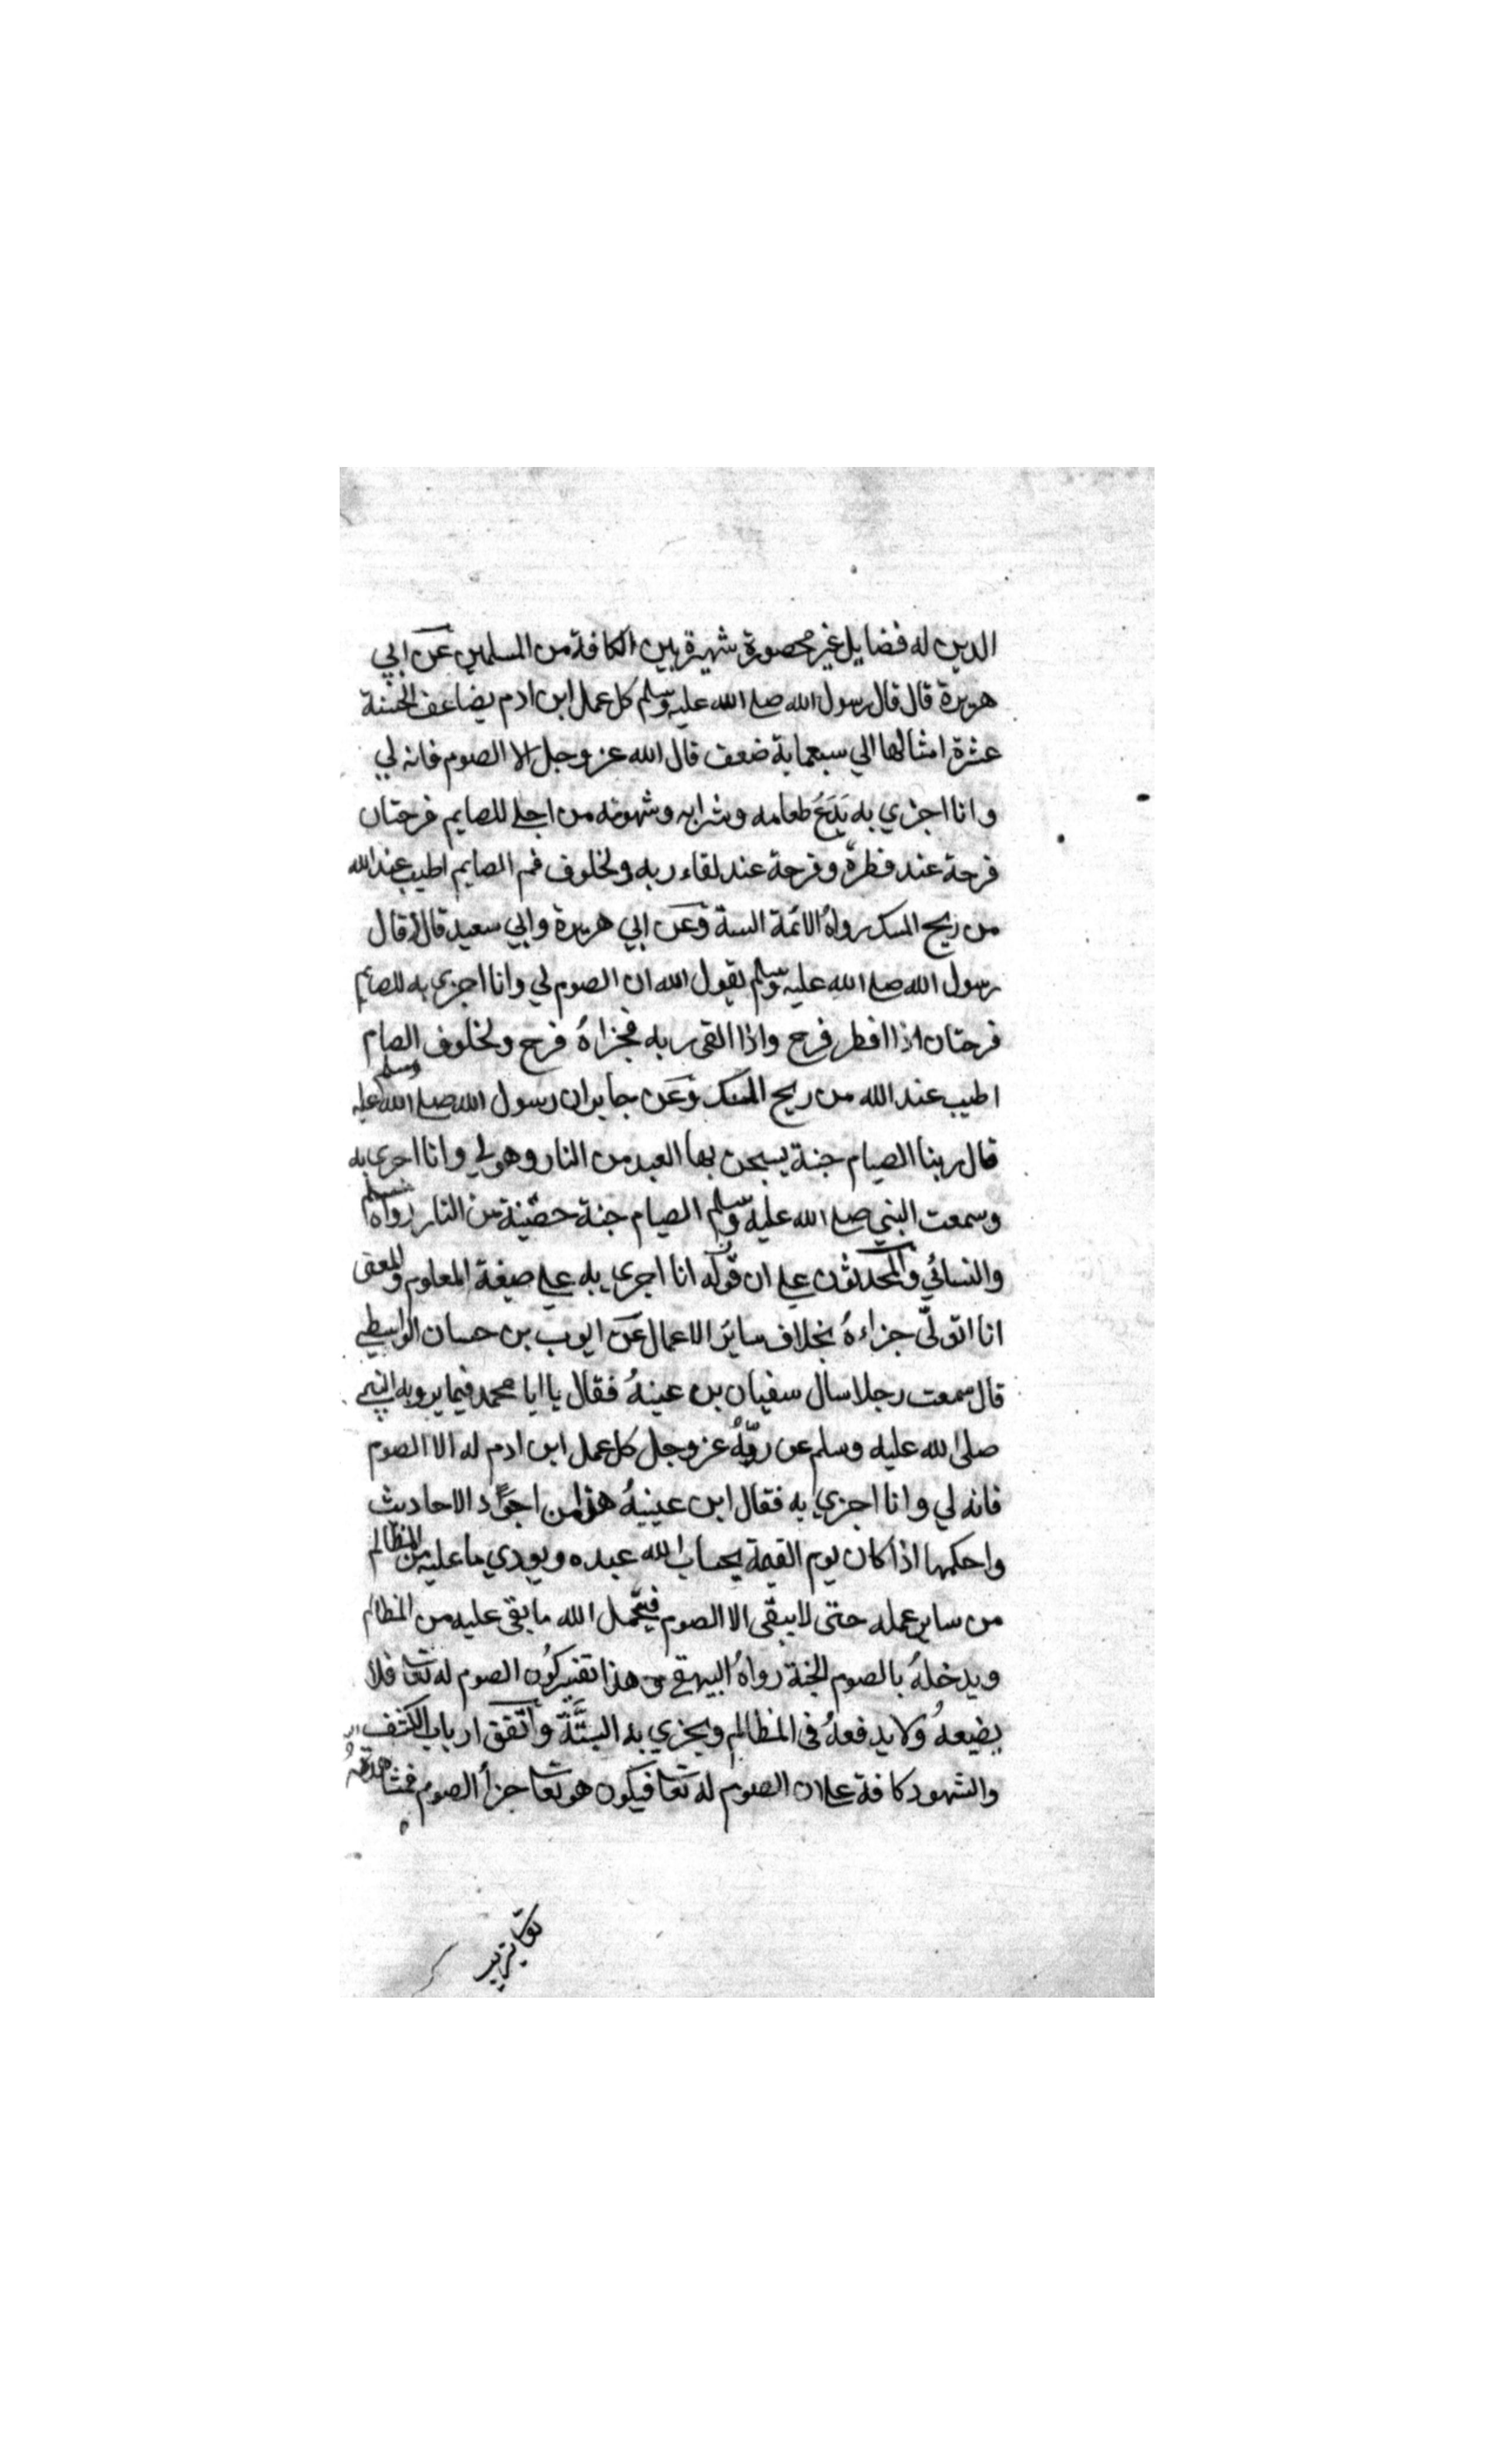 الدين له فضايل غير محصورة شهيرة بين الكافة من المسلمين عن ابي
هريرة قال قال رسول الله صلى الله عليه وسلم كل عمل ابن ادم يضاعف الحسنة
عشرة امثالها الي سبعماية ضعف قال الله عز وجل الا الصوم فانه لي
وانا اجزي به يَدَعُ طعامه وشرابه وشهوته من اجلي للصايم فرحتان
فرحة عند فطرة وفرحة عند لقاء ربه ولخلوف فم الصايم اطيب عند الله
من ريح المسك رواهُ الائمة الستة وعن ابي هريرة وابي سعيد قالا قال
رسول الله صلى الله عليه وسلم يقول الله ان الصوم لي وانا اجزي به للصايم
فرحتان اذا افطر فرح واذا القى ربه فجزاهُ فرح ولخلوف الصام
اطيب عند الله من ريح المسك وعن جابر ان رسول الله صلى الله عليه وسلم
قال ربنا الصيام جنة يسجن بها العبد من النار وهو لي وانا اجزي به
وسمعت النبي صلى الله عليه وسلم الصيام جنة حصينة من النار رواه مسلم
والنسائي والمحدثون علي ان قوله انا اجزي به علي صيغة المعلوم والمعنى
انا اتولّى جزاءهُ بخلاف ساير الاعمال عن ايوب بن حسان الواسطي
قال سمعت رجلا سال سفيان بن عينهُ فقال يا ابا محمد فيما يرويه النبي
صلى الله عليه وسلم عن ربّهُ عز وجل كل عمل ابن ادم له الا الصوم
فانه لي وانا اجزي به فقال ابن عيينهُ هذا من اجوَد الاحاديث
واحكمها اذا كان يوم القيمة يحساب الله عبده ويودي ما عليه من المظالم
من ساير عمله حتى لا يبقى الا الصوم فيتحمل الله ما بقى عليه من المظالم
ويدخلهُ بالصوم الجنة رواهُ البيهقي وهذا تفسير كون الصوم له تعا فلا
يضيعهُ ولا يدفعهُ فى المظالم ويجزي به البتَّةَ واتفق ارباب الكشف
والشهود كافة علي ان الصوم له تعا فيكون هو تعا جزأ الصوم فمشاهدته